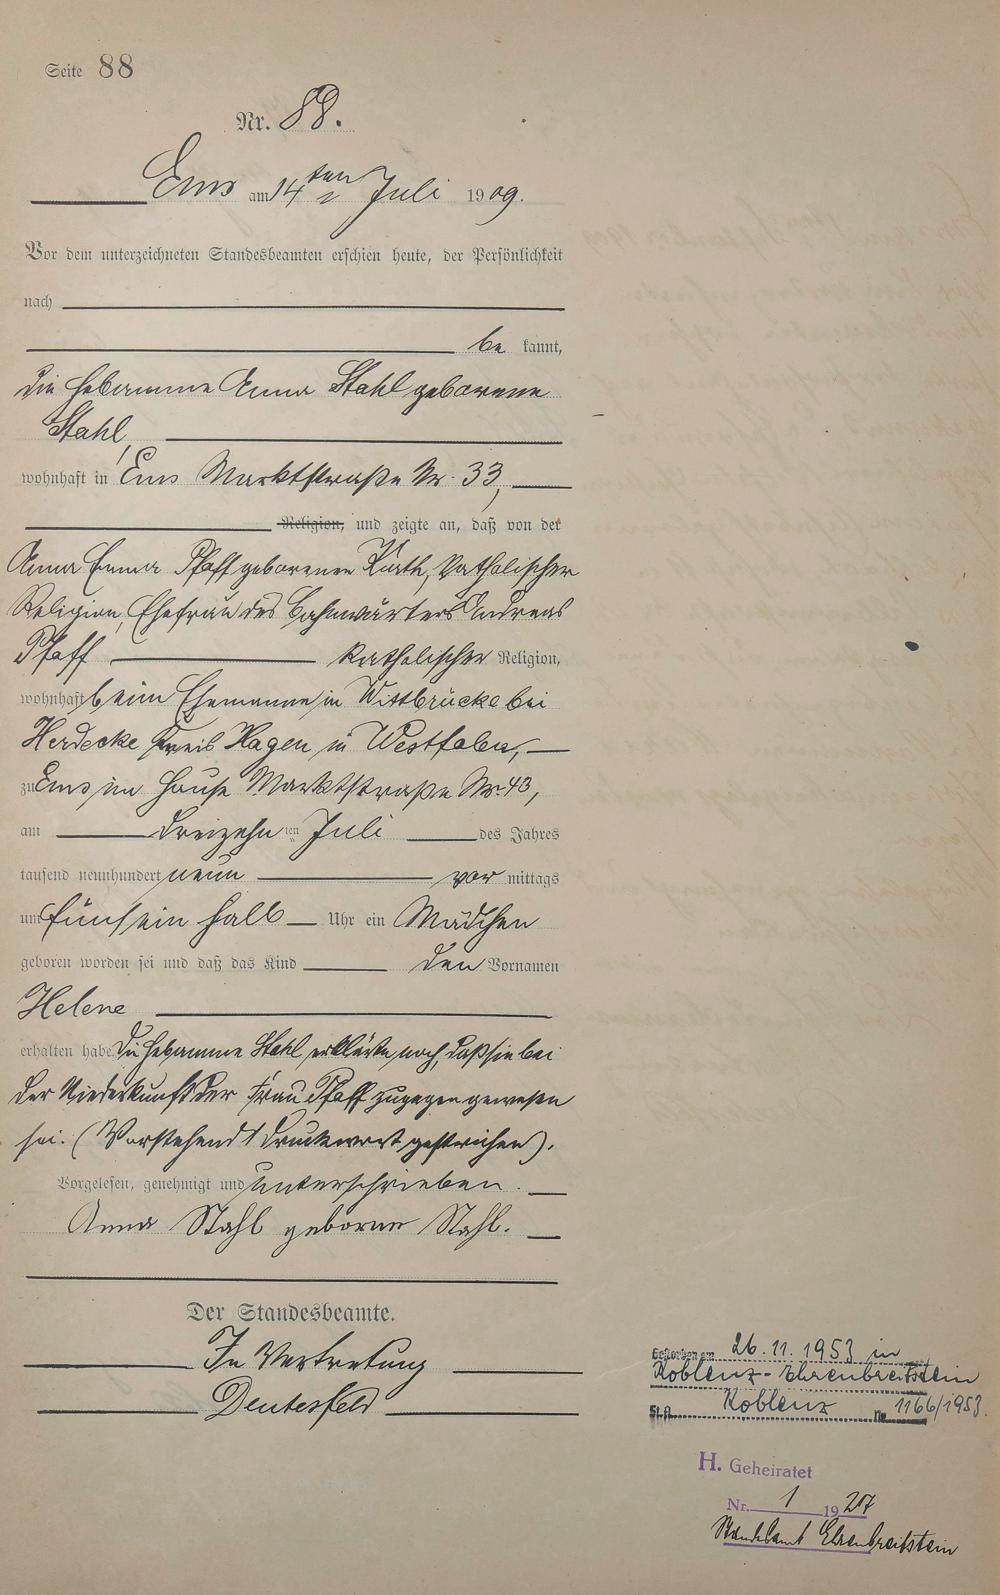 Seite 88
Nr. 88.
Ems am 14ten Juli 1909.
Vor dem unterzeichneten Standesbeamten erschien heute, der Persönlichkeit
nach
be kannt,
die Hebamme Anna Stahl geborene
Stahl,
wohnhaft in Ems Marktstraße Nr. 33,
Religion, und zeigte an, daß von der
Anna Emma Pfaff geborenen Kurth, katholischer
Religion, Ehefrau des Bahnwärters Andreas
Pfaff katholischer Religion,
wohnhaft beim Ehemanne in Wittbrücke bei
Herdecke Kreis Hagen in Westfalen,
zu Ems im Hause Marktstraße Nr. 43,
am dreizehnten Juli des Jahres
tausend neunhundert neun vor mittags
um fünf ein halb Uhr ein Mädchen
geboren worden sei und daß das Kind den Vornamen
Helene
erhalten habe. Die Hebamme Stahl erklärte noch, daß sie bei
der Niederkunft der Frau Pfaff zugegen gewesen
sei. (Vorstehend 1 Druckwort gestrichen).
Vorgelesen, genehmigt und unterschrieben.
Anna Stahl geborne Stahl.
Der Standesbeamte.
In Vertretung
Deutesfeld
Gestorben am 26.11.1953 in
Koblenz-Ehrenbreitstein
St.A. Koblenz Nr. 1166/1953.
H. Geheiratet
Nr. 1 1927
Standesamt Ehrenbreitstein